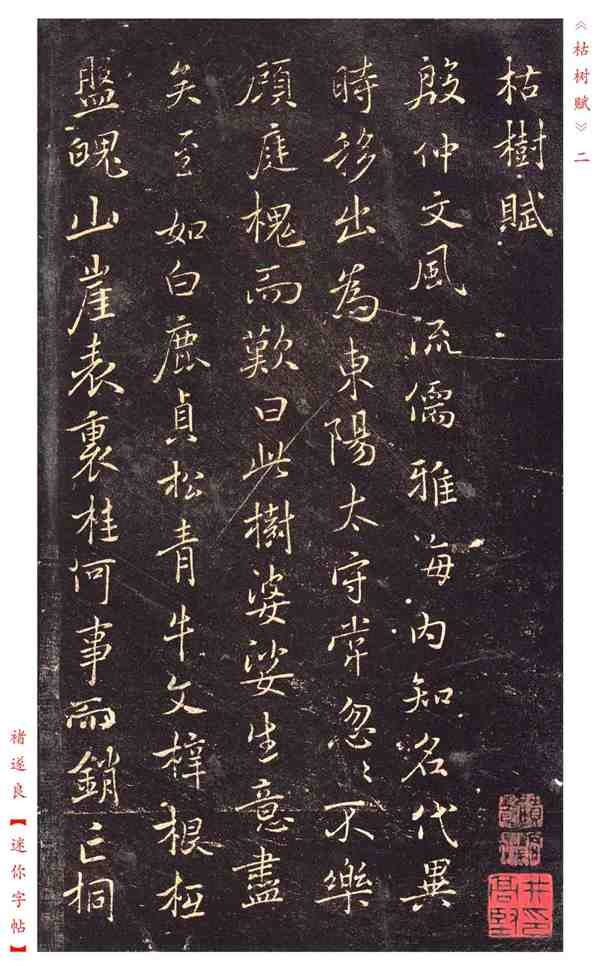 《枯树赋》二
枯樹賦
殷仲文風流儒雅海内知名代異
時移出為東陽太守常忽〻不樂
顧庭槐而歎曰此樹婆娑生意盡
矣至如白鹿貞松青牛文梓根柢
盤魄山崖表裏桂何事而銷亡桐
褚遂良【迷你字帖】